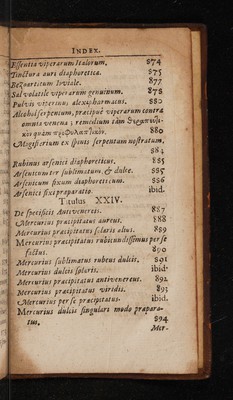 INDEX.
Essentia viperarum Italorum. 874
Tinctura auri diaphoretica. 875
Bezoartitum Ioviale. 877
Sal volatile viperarum genuinum. 878
Pulvis viperinus alexipharmacus. 880
Alcohol serpentum, præcipuè viperarum contra
omnia venena; remedium tàm
quàm 880
Magisterium ex ipsis serpentum nostratum,
884
Rubinus arsenici diaphoreticus. 885
Arsenicum ter sublimatum, & dulce. 885
Arsenicum fixum diaphoreticum. 886
Arsenici fixi præparatio. ibid.
Titulus XXIV.
De specificis Antivenereis. 887
Mercurius præcipitatus aureus. 888
Mercurius præcipitatus solaris alius. 889
Mercurius præcipitatus rubicundissimus per se
factus. 890
Mercurius sublimatus rubeus dulcis. 891
Mercurius dulcis solaris. ibid.
Mercurius præcipitatus antivenereus. 892
Mercurius præcipitatus viridis. 893
Mercurius per se præcipitatus. ibid.
Mercurius dulcis singulari modo præpara-
tus. 894
Mer-